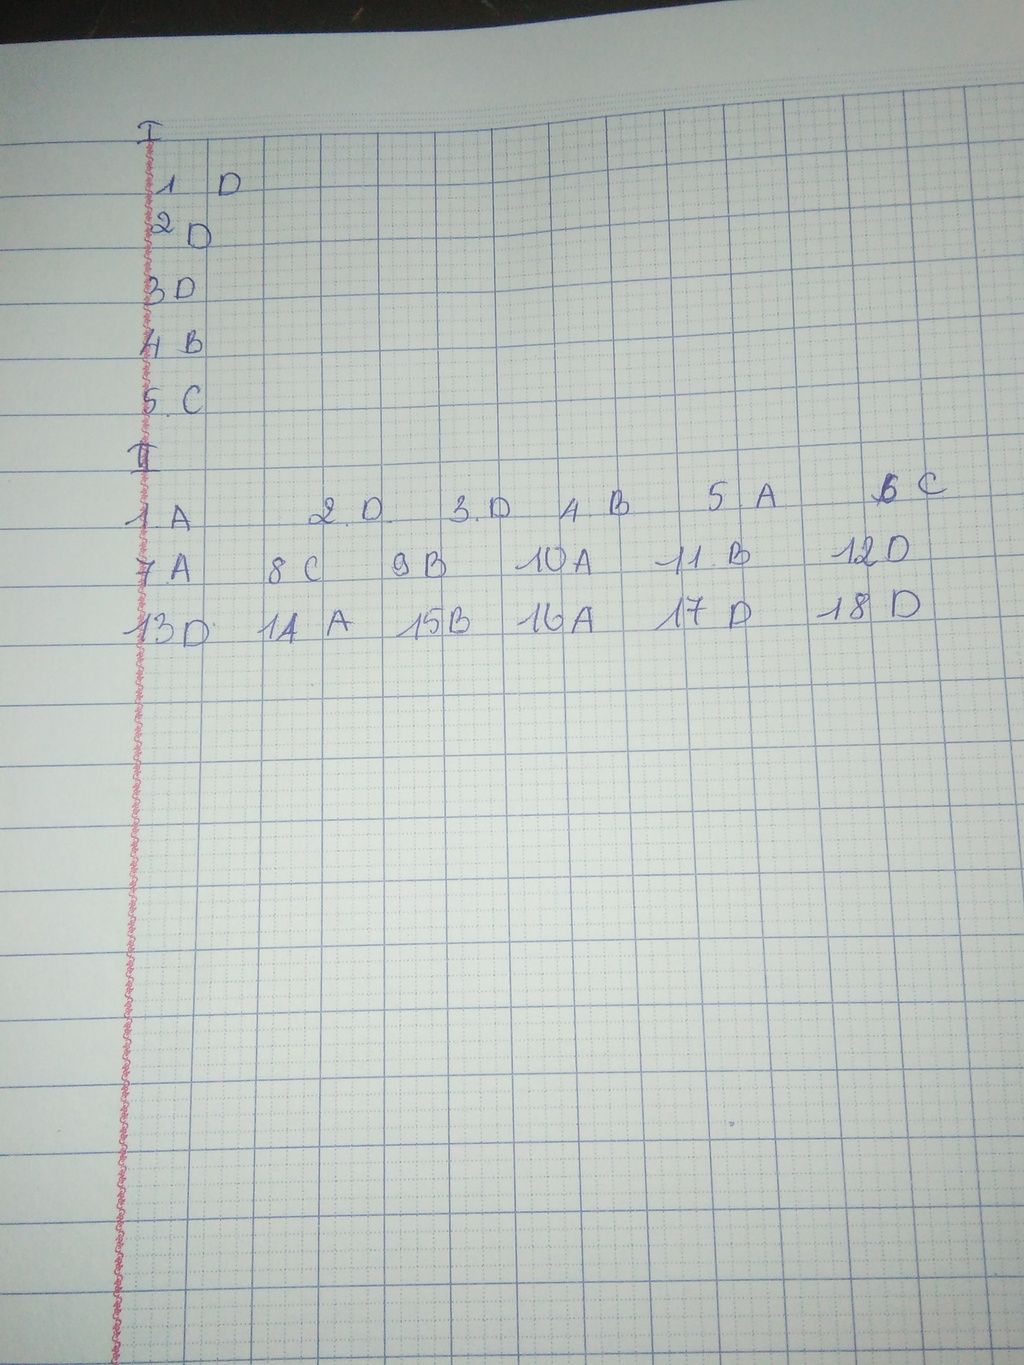 I
1 D
2 D
3 D
4 B
5. C
II
1. A 2. D 3. D 4. B 5 A 6 C
7. A 8 C 9 B 10 A 11. B 12 D
13 D 14 A 15 B 16 A 17 D 18 D